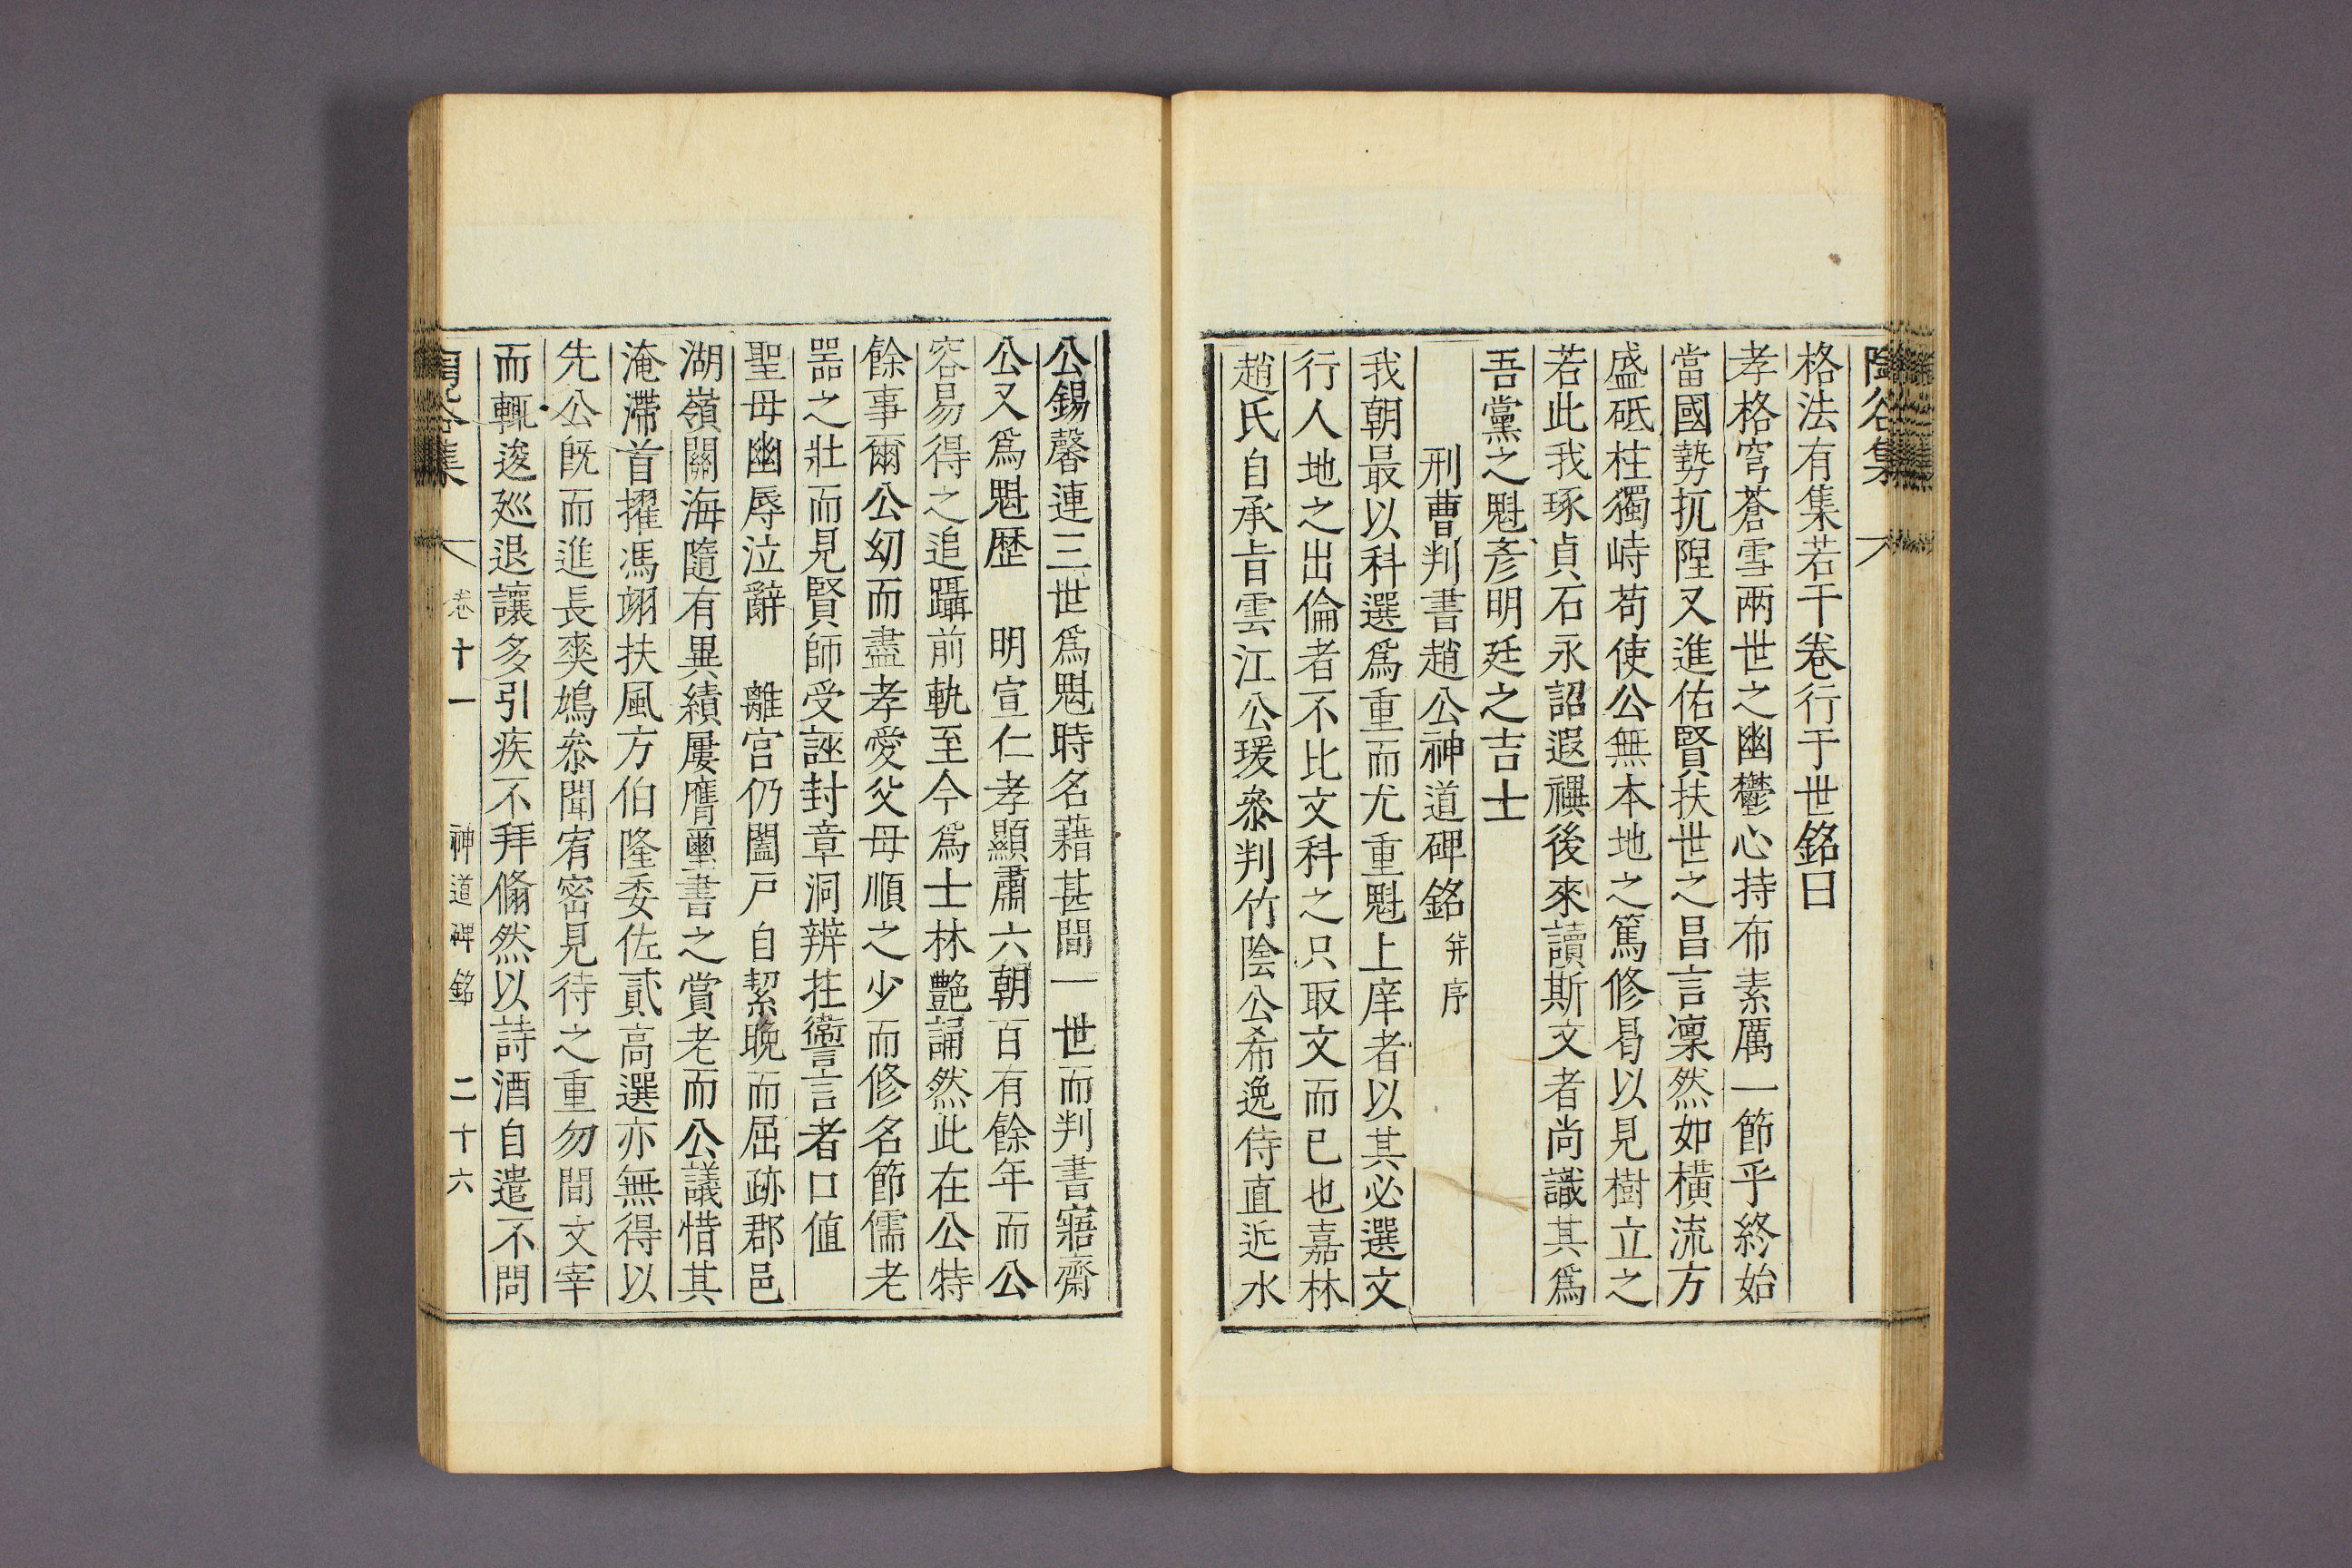 格法有集若干卷行于世銘曰
孝格穹蒼雪兩世之幽鬱心持布素厲一節乎終始
當國勢扤隉又進佑賢扶世之昌言凜然如橫流方
盛砥柱獨峙苟使公無本地之篤修曷以見樹立之
若此我琢貞石永詔遐禩後來讀斯文者尚識其爲
吾黨之魁彥明廷之吉士
刑曹判書趙公神道碑銘 幷序
我朝最以科選爲重而尤重魁上庠者以其必選文
行人地之出倫者不比文科之只取文而已也嘉林
趙氏自承旨雲江公瑗叅判竹陰公希逸侍直近水
公錫馨連三世爲魁時名藉甚間一世而判書寤齋
公又爲魁歷 明宣仁孝顯肅六朝百有餘年而公
容易得之追躡前軌至今爲士林艷誦然此在公特
餘事爾公幼而盡孝愛父母順之少而修名節儒老
噐之壯而見賢師受誣封章洞辨抂讏言者口値
聖母幽辱泣辭 離宮仍闔戶自絜晩而屈跡郡邑
湖嶺關海隨有異績屢膺璽書之賞老而公議惜其
淹滯首擢馮翊扶風方伯隆委佐貳高選亦無得以
先公旣而進長爽鳩叅聞宥密見待之重勿間文宰
而輒逡廵退讓多引疾不拜翛然以詩酒自遣不問
集 卷十一 神道碑銘 二十六